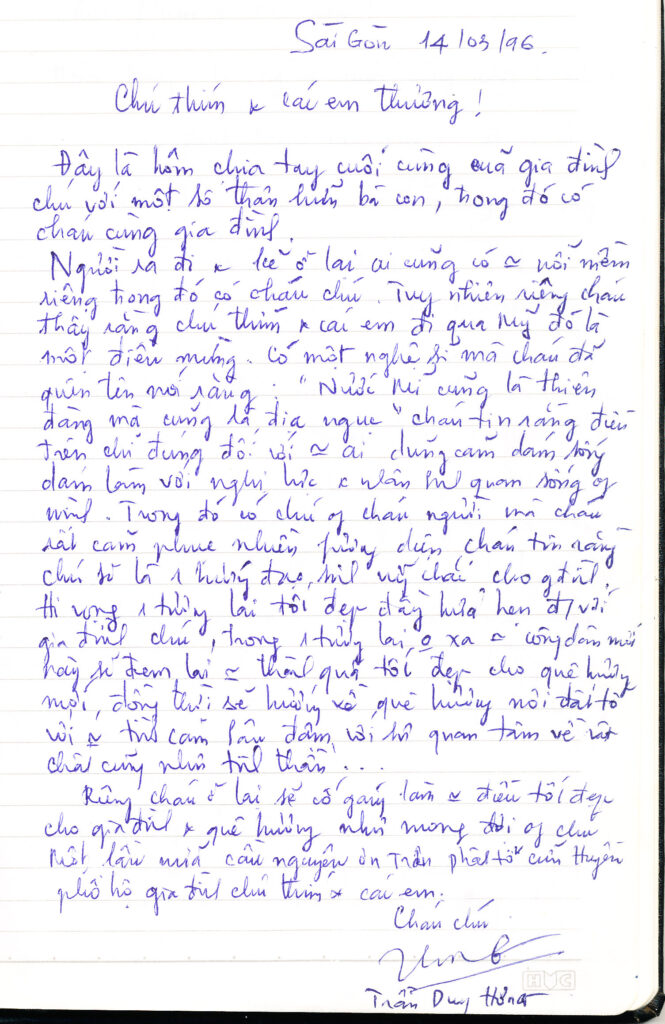 Sài Gòn 14/03/96.
Chú thím x các em thương!
Đây là hôm chia tay cuối cùng của gia đình
chú với một số thân hữu bà con, trong đó có
cháu cùng gia đình.
Người ra đi x kẻ ở lại ai cũng có ≃ nỗi niềm
riêng trong đó có cháu chú. Tuy nhiên riêng cháu
thấy rằng chú thím x các em đi qua Mỹ đó là
một điều mừng. Có một nghệ sĩ mà cháu đã
quên tên nói rằng: "Nước Mĩ cũng là thiên
đàng mà cũng là địa ngục" cháu tin rằng điều
trên chỉ đúng đối với ≃ ai dũng cảm dám sống
dám làm với nghị lực x nhân quan sống of
mình. Trong đó có chú of cháu người mà cháu
rất cảm phục nhiều phương diện, cháu tin rằng
chú sẽ là 1 hướng đạo, cho gđình.
Hi vọng 1 tương lai tốt đẹp đầy hứa hẹn đ/v với
gia đình chú, trong 1 tương lai o xa ≃ công dân mới
này sẽ đem lại ≃ thành quả tốt đẹp cho quê hương
mới, đồng thời sẽ hướng về quê hương nơi đất tổ
với ≃ tình cảm sâu đậm, với sự quan tâm về vật
chất cũng như tinh thần...
Riêng cháu ở lại sẽ cố gắng làm ≃ điều tốt đẹp
cho gia đình x quê hương như mong đợi of chú
Một lần nữa cầu nguyện ơn Trên phật tổ cửu Huyền
phổ hộ gia đình chú thím x các em.
Cháu chú
Trần Duy Hưng
HVC